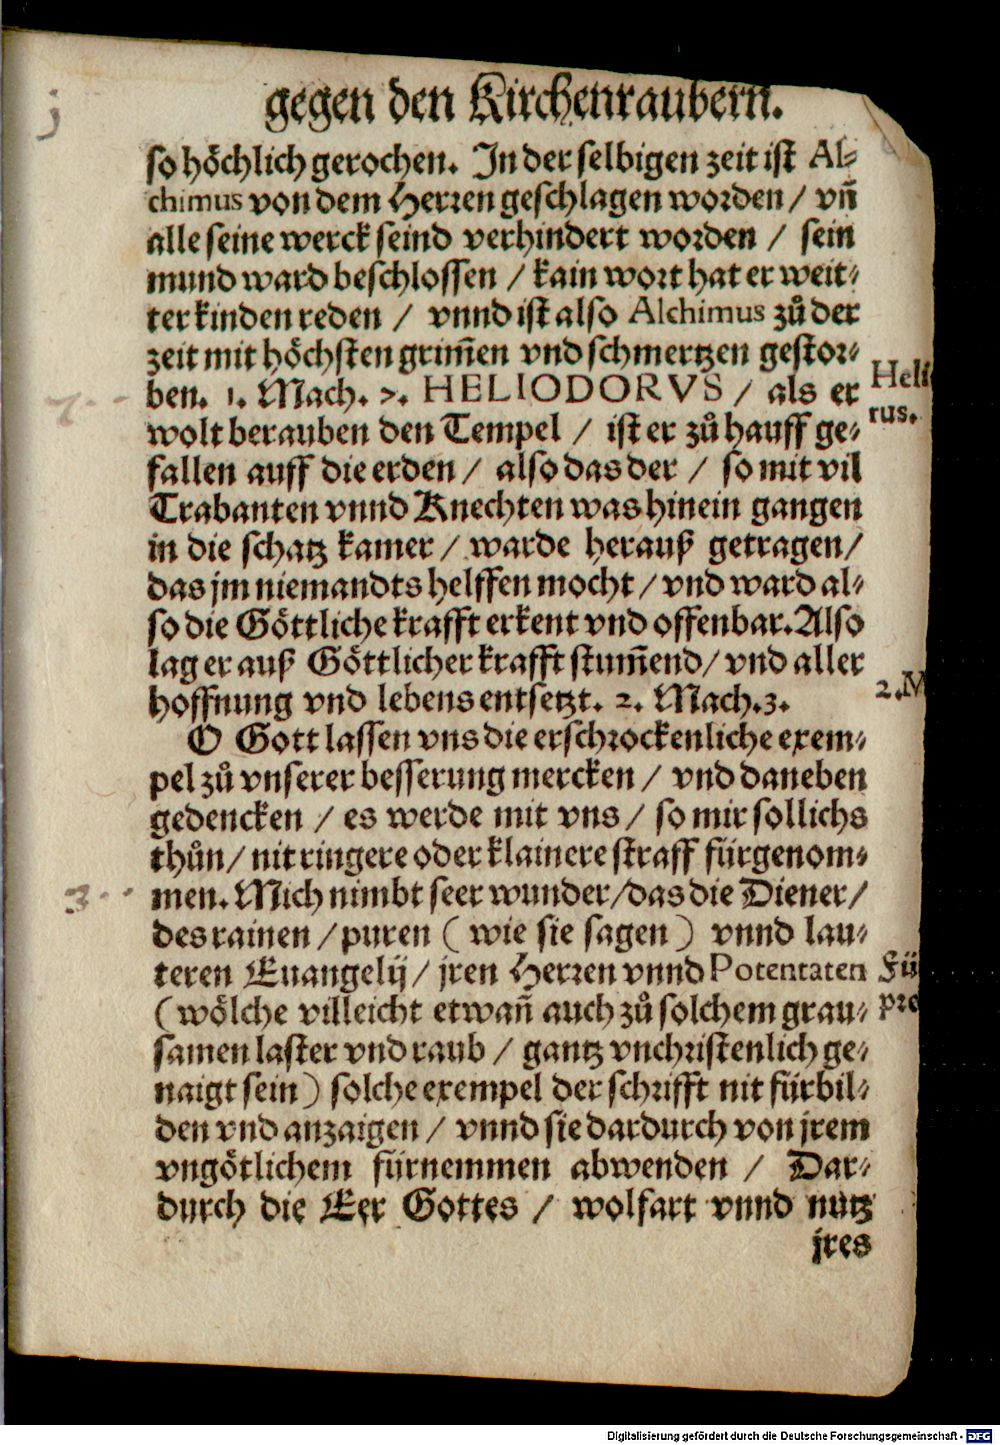 gegen den Kirchenraubern.
so höchlich gerochen. In der selbigen zeit ist Al-
chimus von dem Herren geschlagen worden / vñ
alle seine werck seind verhindert worden / sein
mund ward beschlossen / kain wort hat er weit-
ter kinden reden / vnnd ist also Alchimus zů der
zeit mit höchsten grim̃en vnd schmertzen gestor-
ben. 1. Mach. 7. HELIODORVS / als er
Heli
wolt berauben den Tempel / ist er zů hauff ge-
rus.
fallen auff die erden / also das der / so mit vil
Trabanten vnnd Knechten was hinein gangen
in die schatz kamer / warde herauß getragen /
das jm niemandts helffen mocht / vnd ward al-
so die Göttliche krafft erkent vnd offenbar. Also
lag er auß Göttlicher krafft stum̃end / vnd aller
hoffnung vnd lebens entsetzt. 2. Mach. 3.
2. M
O Gott lassen vns die erschrockenliche exem-
pel zů vnserer besserung mercken / vnd daneben
gedencken / es werde mit vns / so mir sollichs
thůn / nit ringere oder klainere straff fürgenom-
men. Mich nimbt seer wunder / das die Diener /
des rainen / puren ( wie sie sagen ) vnnd lau-
teren Euangelij / jren Herren vnnd Potentaten
Fü
(wölche villeicht etwañ auch zů solchem grau-
pre
samen laster vnd raub / gantz vnchristenlich ge-
naigt sein ) solche exempel der schrifft nit fürbil-
den vnd anzaigen / vnnd sie dardurch von jrem
vngötlichem fürnemmen abwenden / Dar-
durch die Eer Gottes / wolfart vnnd nutz
jres
j
7.
3
Digitalisierung gefördert durch die Deutsche Forschungsgemeinschaft - DFG